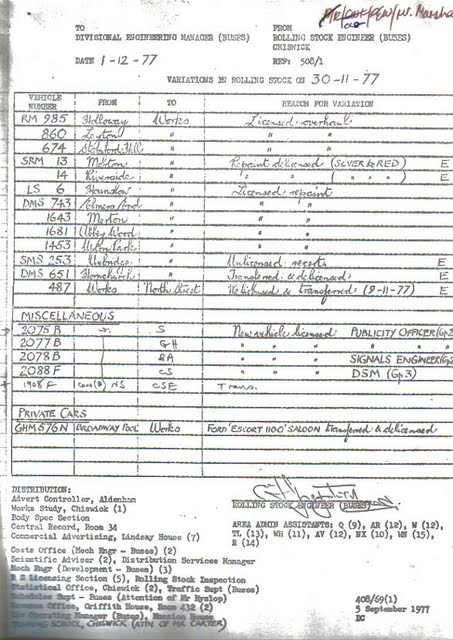 Mr W. Marsha
TO
DIVISIONAL ENGINEERING MANAGER (BUSES)
FROM
ROLLING STOCK ENGINEER (BUSES)
CHISWICK
DATE 1-12-77
REF: 508/1
VARIATIONS IN ROLLING STOCK ON 30-11-77
VEHICLE NUMBER FROM TO REASON FOR VARIATION
RM 985 Holloway Works Licensed overhaul
860 Leyton " " "
674 Stamford Hill " " "
SRM 13 Merton " Repaint delicensed (SILVER to RED) E
14 Riverside " " " ( " " " ) E
LS 6 Hounslow " Licensed repaint
DMS 743 Palmers Green " " "
1643 Merton " " "
1681 Abbey Wood " " "
1453 Upton Park " " "
SMS 253 Uxbridge " Unlicensed recert. E
DMS 651 Hornchurch " Transferred & delicensed E
487 Works North Street Relicensed & transferred (2-11-77) E
MISCELLANEOUS
2075 B S New vehicle licensed PUBLICITY OFFICER (Gp2
2077 B GH " " " "
2078 B BA " " " SIGNALS ENGINEER (Gp
2088 F CS " " " DSM (Gp3)
1908 F NS CSE Trans.
PRIVATE CARS
GHM 576N BROADWAY POOL Works FORD 'ESCORT 1100' SALOON transferred & delicensed
DISTRIBUTION:
Advert Controller, Aldenham
Works Study, Chiswick (1)
Body Spec Section
Central Record, Room 34
Commercial Advertising, Lindsay House (7)
Costs Office (Mech Engr - Buses) (2)
Scientific Adviser (2), Distribution Services Manager
Mech Engr (Development - Buses) (3)
R S Licensing Section (5), Rolling Stock Inspection
Statistical Office, Chiswick (2), Traffic Supt (Buses)
Schedules Supt - Buses (Attention of Mr Hyslop)
Revenue Office, Griffith House, Room 432 (2)
Manager (Buses), Mansion House
TRAINING SCHOOL, CHISWICK (ATTN OF MR CARTER)
ROLLING STOCK ENGINEER (BUSES)
AREA ADMIN ASSISTANTS: Q (9), AR (12), W (12),
TL (13), WH (11), AV (12), NX (10), WN (15),
R (14)
408/69(1)
5 September 1977
EC